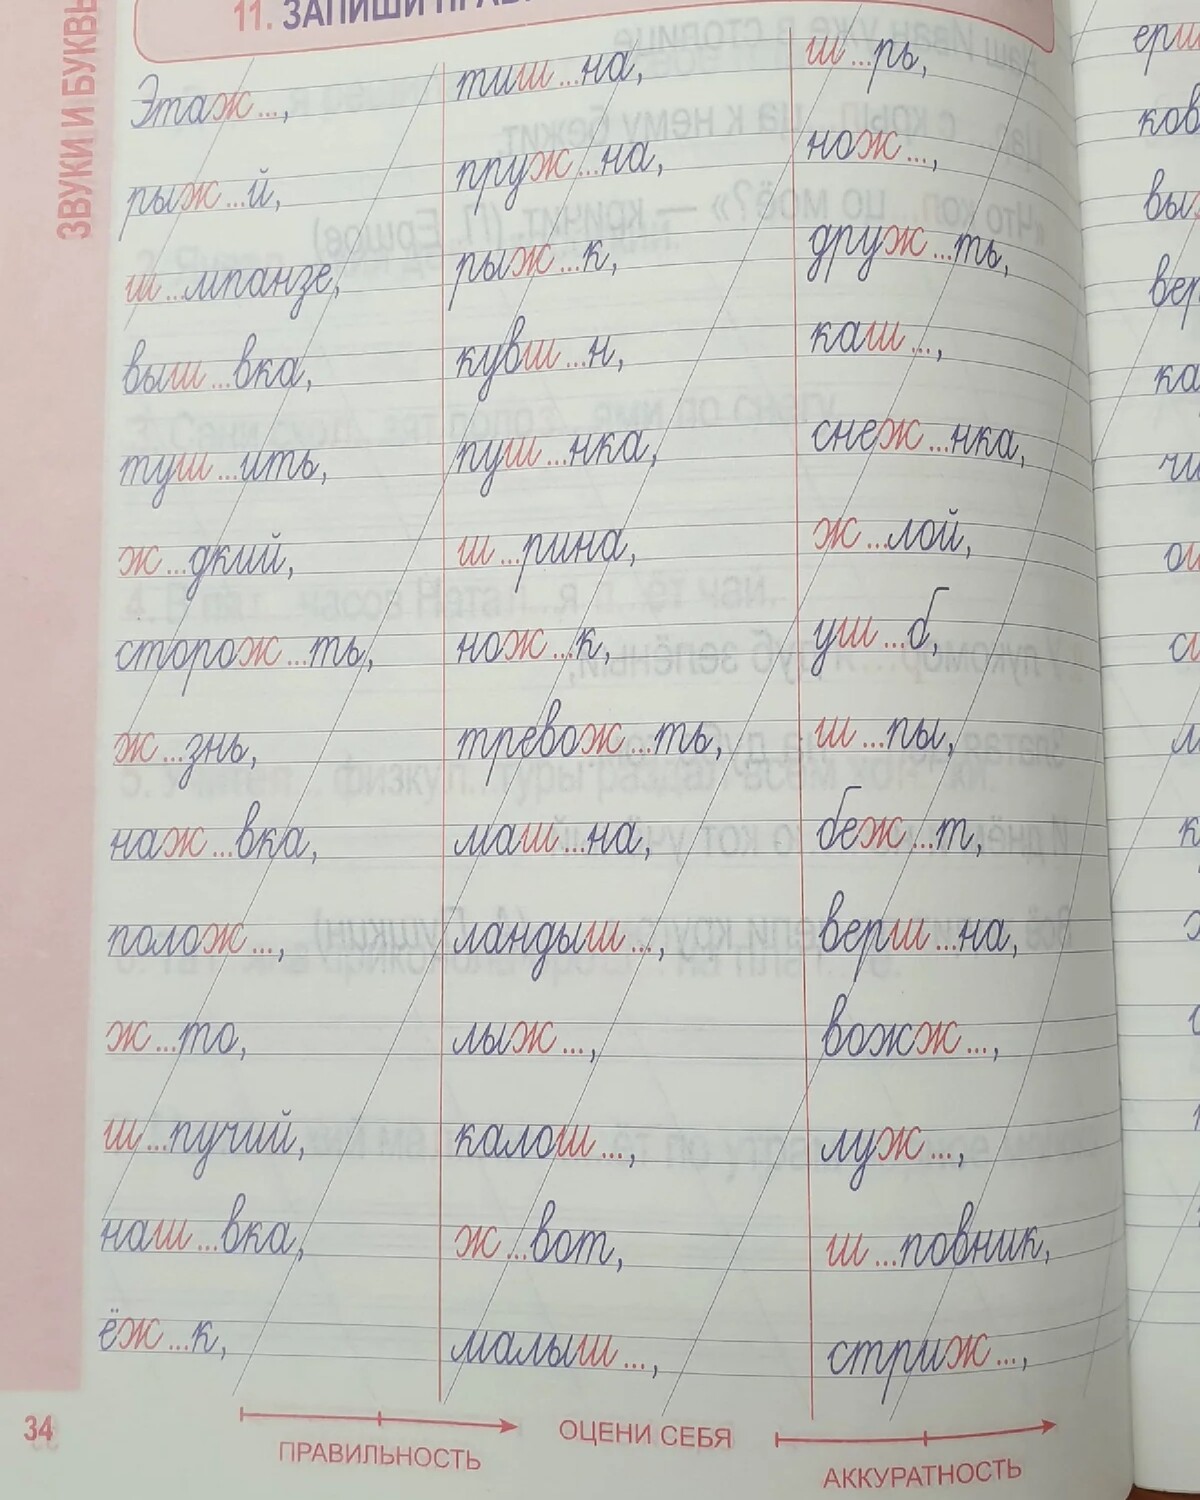 ЗВУКИ И БУКВЫ
11. ЗАПИШИ
Этаж...,
рыж...й,
ш...мпанзе,
выш...вка,
туш...ить,
ж...дкий,
сторож...ть,
ж...знь,
наж...вка,
полож...,
ж...то,
ш...пучий,
наш...вка,
ёж...к,
тиш...на,
пруж...на,
рыж...к,
кувш...н,
пуш...нка,
ш...рина,
нож...к,
тревож...ть,
маш...на,
ландыш...,
лыж...,
калош...,
ж...вот,
малыш...,
ш...рь,
нож...,
друж...ть,
каш...,
снеж...нка,
ж...лой,
уш...б,
ш...пы,
беж...т,
верш...на,
вожж...,
луж...,
ш...повник,
стриж...,
34
ПРАВИЛЬНОСТЬ
ОЦЕНИ СЕБЯ
АККУРАТНОСТЬ